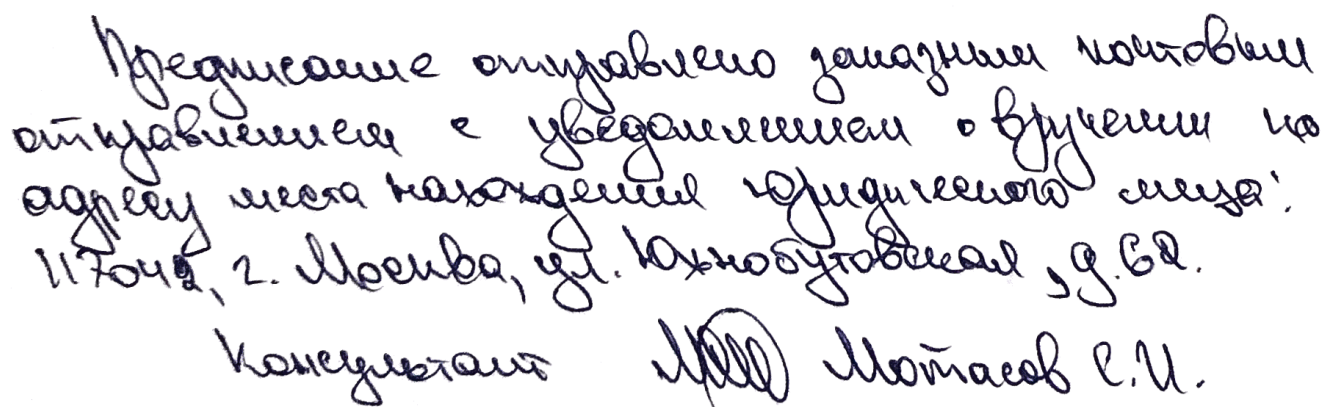 Предписание отправлено заказным почтовым
отправлением с уведомлением о вручении по
адресу места нахождения юридического лица:
117042, г. Москва, ул. Южнобутовская, д.62.
Консультант Мотасов С.И.